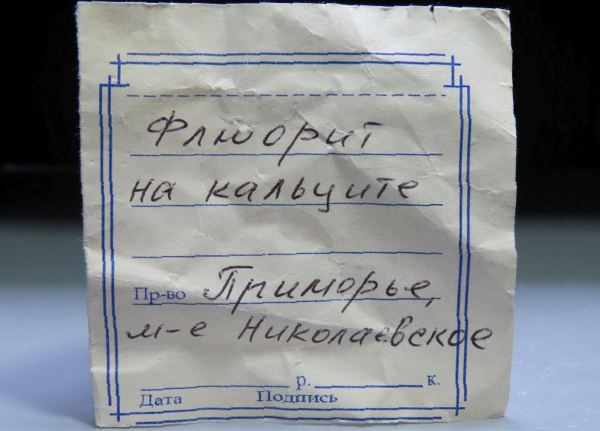 Флюорит
на кальците
Пр-во Приморье,
м-е Николаевское
р. к.
Дата Подпись